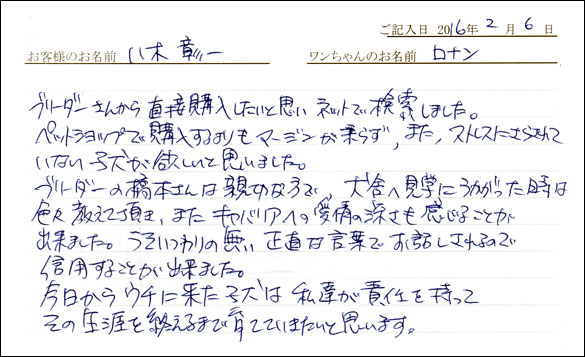 ご記入日 2016年 2月 6日
お客様のお名前 八木 彰一 ワンちゃんのお名前 ロナン
ブリーダーさんから直接購入したいと思いネットで検索しました。
ペットショップで購入するよりもマージンが乗らず、また、ストレスにさらされて
いない子犬が欲しいと思いました。
ブリーダーの橋本さんは親切な方で、犬舎へ見学にうかがった時は
色々教えて頂き、またキャバリアへの愛情の深さも感じることが
出来ました。うそいつわりの無い正直な言葉でお話しされるので
信用することが出来ました。
今日からウチに来た子犬は私達が責任を持って
その生涯を終えるまで育てていきたいと思います。